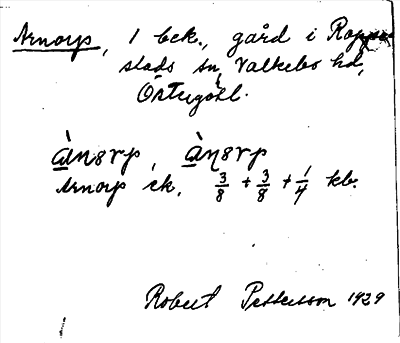 Arnorp, 1 bek., gård i Rappe
stads sn, Valkebo hd,
Östergötl.
à̱nɜrp, à̱ŋɜrp
Arnorp ek. 3/8 + 3/8 + 1/4 kb.
Robert Pettersson 1929